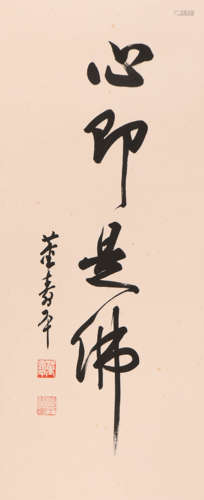 心即是佛
董寿平